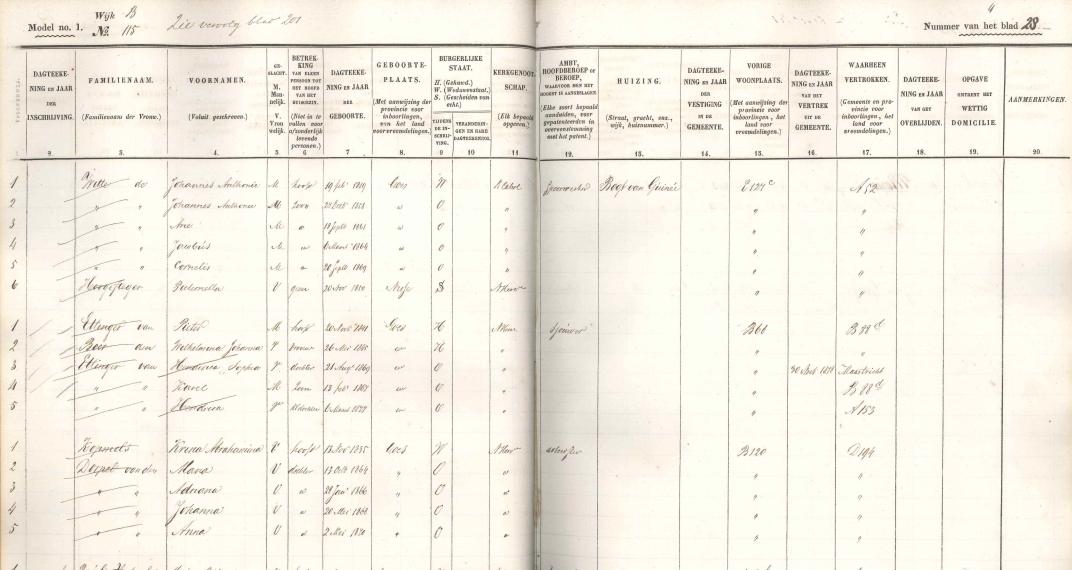 Wijk B
Model no. 1. No. 115 Zie vervolg blad 201
Nummer van het blad 28
DAGTEEKENING en JAAR DER INSCHRIJVING.
FAMILIENAAM. (Familienaam der Vrouw.)
VOORNAMEN. (Voluit geschreven.)
GESLACHT. M. Mannelijk. V. Vrouwelijk.
BETREKKING VAN ELKEN PERSOON TOT HET HOOFD VAN HET HUISGEZIN. (Niet in te vullen voor afzonderlijk levende personen.)
DAGTEEKENING en JAAR DER GEBOORTE.
GEBOORTEPLAATS. (Met aanwijzing der provincie voor inboorlingen, van het land voor vreemdelingen.)
BURGERLIJKE STAAT. H. (Gehuwd.) W. (Weduwenstaat.) S. (Gescheiden van echt.)
TIJDENS DE INSCHRIJVING.
VERANDERINGEN EN HARE DAGTEEKENING.
KERKGENOOTSCHAP. (Elk bepaald opgeven.)
AMBT, HOOFDBEROEP of BEROEP, WAARVOOR MEN HET HOOGST IS AANGESLAGEN. (Elke soort bepaald aanduiden, voor gepatenteerden in overeenstemming met het patent.)
HUIZING. (Straat, gracht, enz., wijk, huisnummer.)
DAGTEEKENING en JAAR DER VESTIGING IN DE GEMEENTE.
VORIGE WOONPLAATS. (Met aanwijzing der provincie voor inboorlingen, het land voor vreemdelingen.)
DAGTEEKENING en JAAR VAN HET VERTREK UIT DE GEMEENTE.
WAARHEEN VERTROKKEN. (Gemeente en provincie voor inboorlingen, het land voor vreemdelingen.)
DAGTEEKENING en JAAR VAN HET OVERLIJDEN.
OPGAVE OMTRENT HET WETTIG DOMICILIE.
AANMERKINGEN.
2. 3. 4. 5. 6. 7. 8. 9. 10. 11. 12. 13. 14. 15. 16. 17. 18. 19. 20.
1 Witte de Johannes Anthonie M hoofd 19 feb 1819 Goes W R Cathol Boof van Guinée E 127 c A 52
2 " " Johannes Anthonie M zoon 1858 " O " " "
3 " " Arie M " 1861 " O " " "
4 " " Jacobus M " 6 Maart 1864 " O " " "
5 " " Cornelis M " 28 Sept 1869 " O " " "
6 Pieternella V 20 Nov 1810 S N Herv " "
1 Ettinger van Pieter M hoofd 20 Nov 1841 Goes H N Herv B 66 B 88 d
2 Wilhelmina Johanna V vrouw 26 Mei 1845 " H " " "
3 Ettinger van Hendrica Sophia V dochter 21 Aug 1869 " O " " Maastricht
4 " " Karel M Zoon 13 feb 1867 " O " " B 88 d
5 " " Hendrica V 6 Maart " O " " A 153
1 Krina Abrahamina V hoofd 13 Nov 1835 Goes W N Herv arbeidster B 120 D 194
2 van den Maria V dochter 13 Oct 1864 " O " " "
3 " " Adriana V " 29 Jan 1866 " O " " "
4 " " Johanna V " 20 Mei 1868 " O " " "
5 " " Anna V " 2 Mei 1870 " O " " "